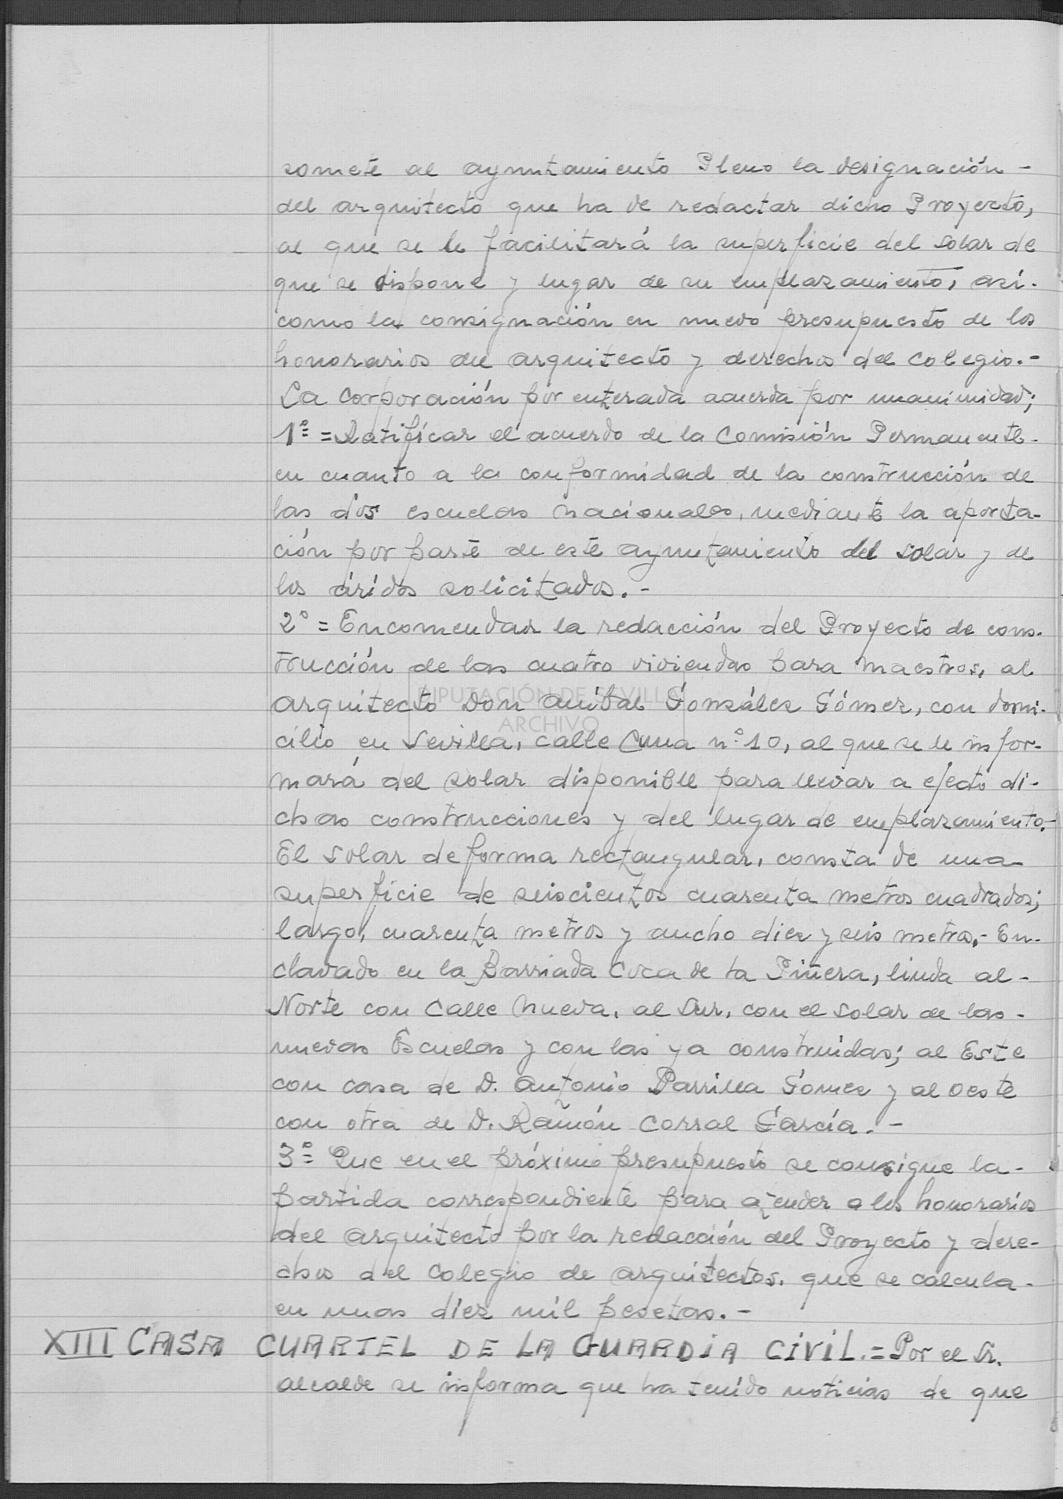 somete al ayuntamiento Pleno la designación -
del arquitecto que ha de redactar dicho Proyecto,
al que se le facilitará la superficie del solar de
que se dispone y lugar de su emplazamiento, así-
como la consignación en nuevo presupuesto de los
honorarios del arquitecto y derechos del colegio.-
La corporación por enterada acuerda por unanimidad;
1º = Ratificar el acuerdo de la Comisión Permanente-
en cuanto a la conformidad de la construcción de
las dos escuelas nacionales, mediante la aporta-
ción por parte de este ayuntamiento del solar y de
los áridos solicitados.-
2º = Encomendar la redacción del Proyecto de cons-
trucción de las cuatro viviendas para maestros, al
arquitecto Don Aníbal González Gómez, con domi-
cilio en Sevilla, calle Cuna nº 10, al que se le infor-
mará del solar disponible para llevar a efecto di-
chas construcciones y del lugar de emplazamiento.-
El solar de forma rectangular, consta de una
superficie de seiscientos cuarenta metros cuadrados;
largo, cuarenta metros y ancho diez y seis metros,- En-
clavado en la Barriada Coca de la Piñera, linda al -
Norte con Calle Nueva, al Sur, con el solar de las -
nuevas Escuelas y con las ya construidas; al Este
con casa de D. Antonio Parrilla Gómez y al oeste
con otra de D. Ramón Corral García.-
3º = Que en el próximo presupuesto se consigne la-
partida correspondiente para atender a los honorarios
del arquitecto por la redacción del Proyecto y dere-
chos del Colegio de arquitectos, que se calcula-
en unas diez mil pesetas.-
XIII CASA CUARTEL DE LA GUARDIA CIVIL.= Por el Sr.
alcalde se informa que ha tenido noticias de que
DIPUTACIÓN DE SEVILLA
ARCHIVO